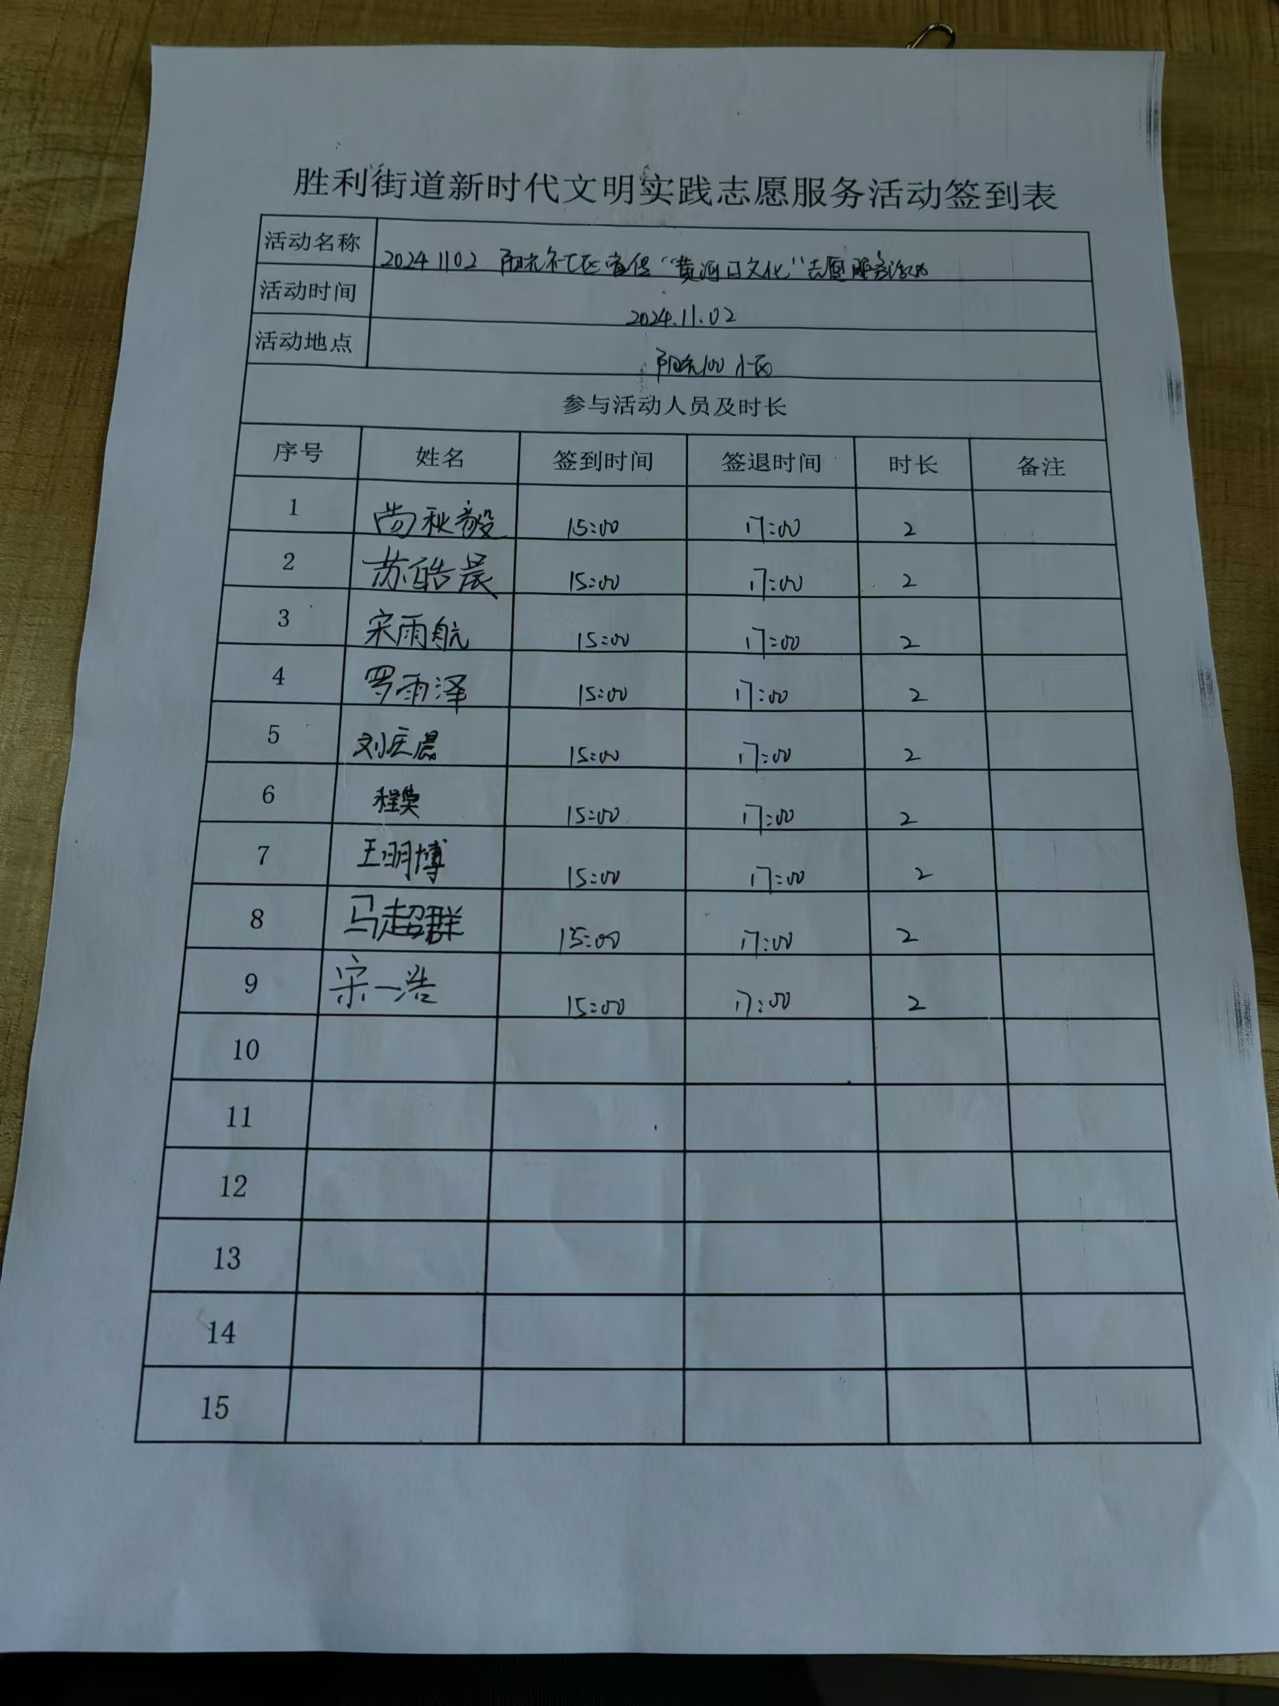 胜利街道新时代文明实践志愿服务活动签到表
活动名称 20241102 阳光社区宣传“黄河口文化”志愿服务活动
活动时间 2024.11.02
活动地点 阳光100小区
参与活动人员及时长
序号 姓名 签到时间 签退时间 时长 备注
1 尚秋毅 15:00 17:00 2
2 苏皓晨 15:00 17:00 2
3 宋雨航 15:00 17:00 2
4 罗雨泽 15:00 17:00 2
5 刘庄晨 15:00 17:00 2
6 15:00 17:00 2
7 王明博 15:00 17:00 2
8 马超群 15:00 17:00 2
9 宋一浩 15:00 17:00 2
10
11
12
13
14
15